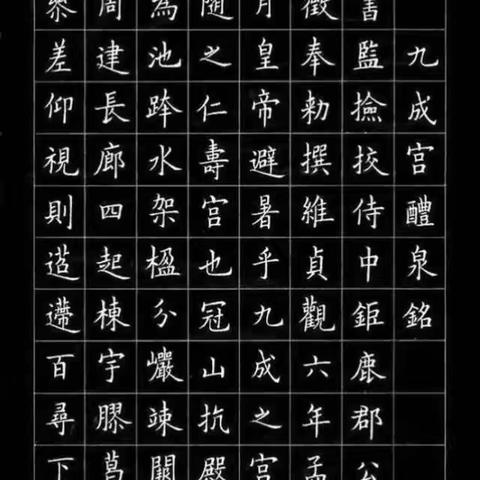 九成宫醴泉銘
書監撿挍侍中鉅鹿郡公
徵奉勅撰維貞觀六年孟
月皇帝避暑乎九成之宫
隨之仁壽宫也冠山抗殿
為池跨水架楹分巖竦闕
周建長廊四起棟宇膠葛
參差仰視則迢遰百尋下